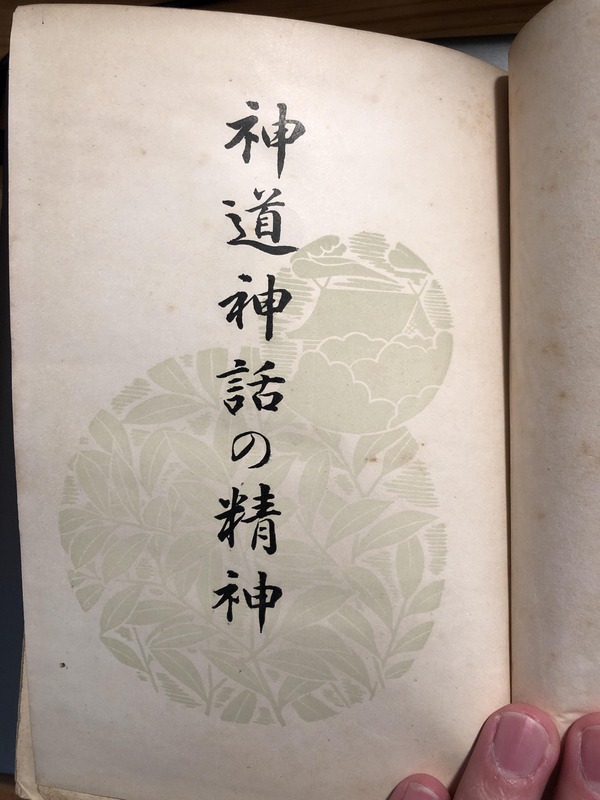 神道神話の精神